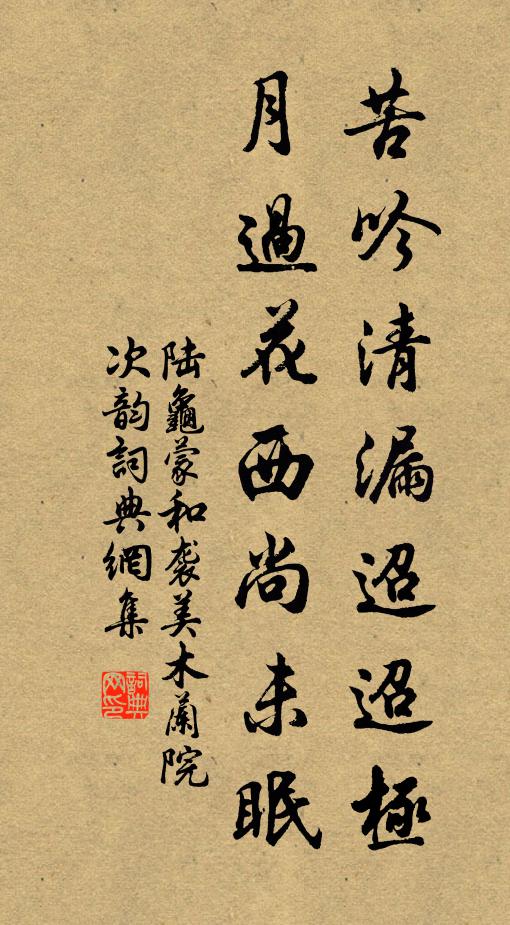 苦吟清漏迢迢極
月過花西尚未眠
陆龜蒙和袭美木蘭院
次韵詞典網集
詞典
网印